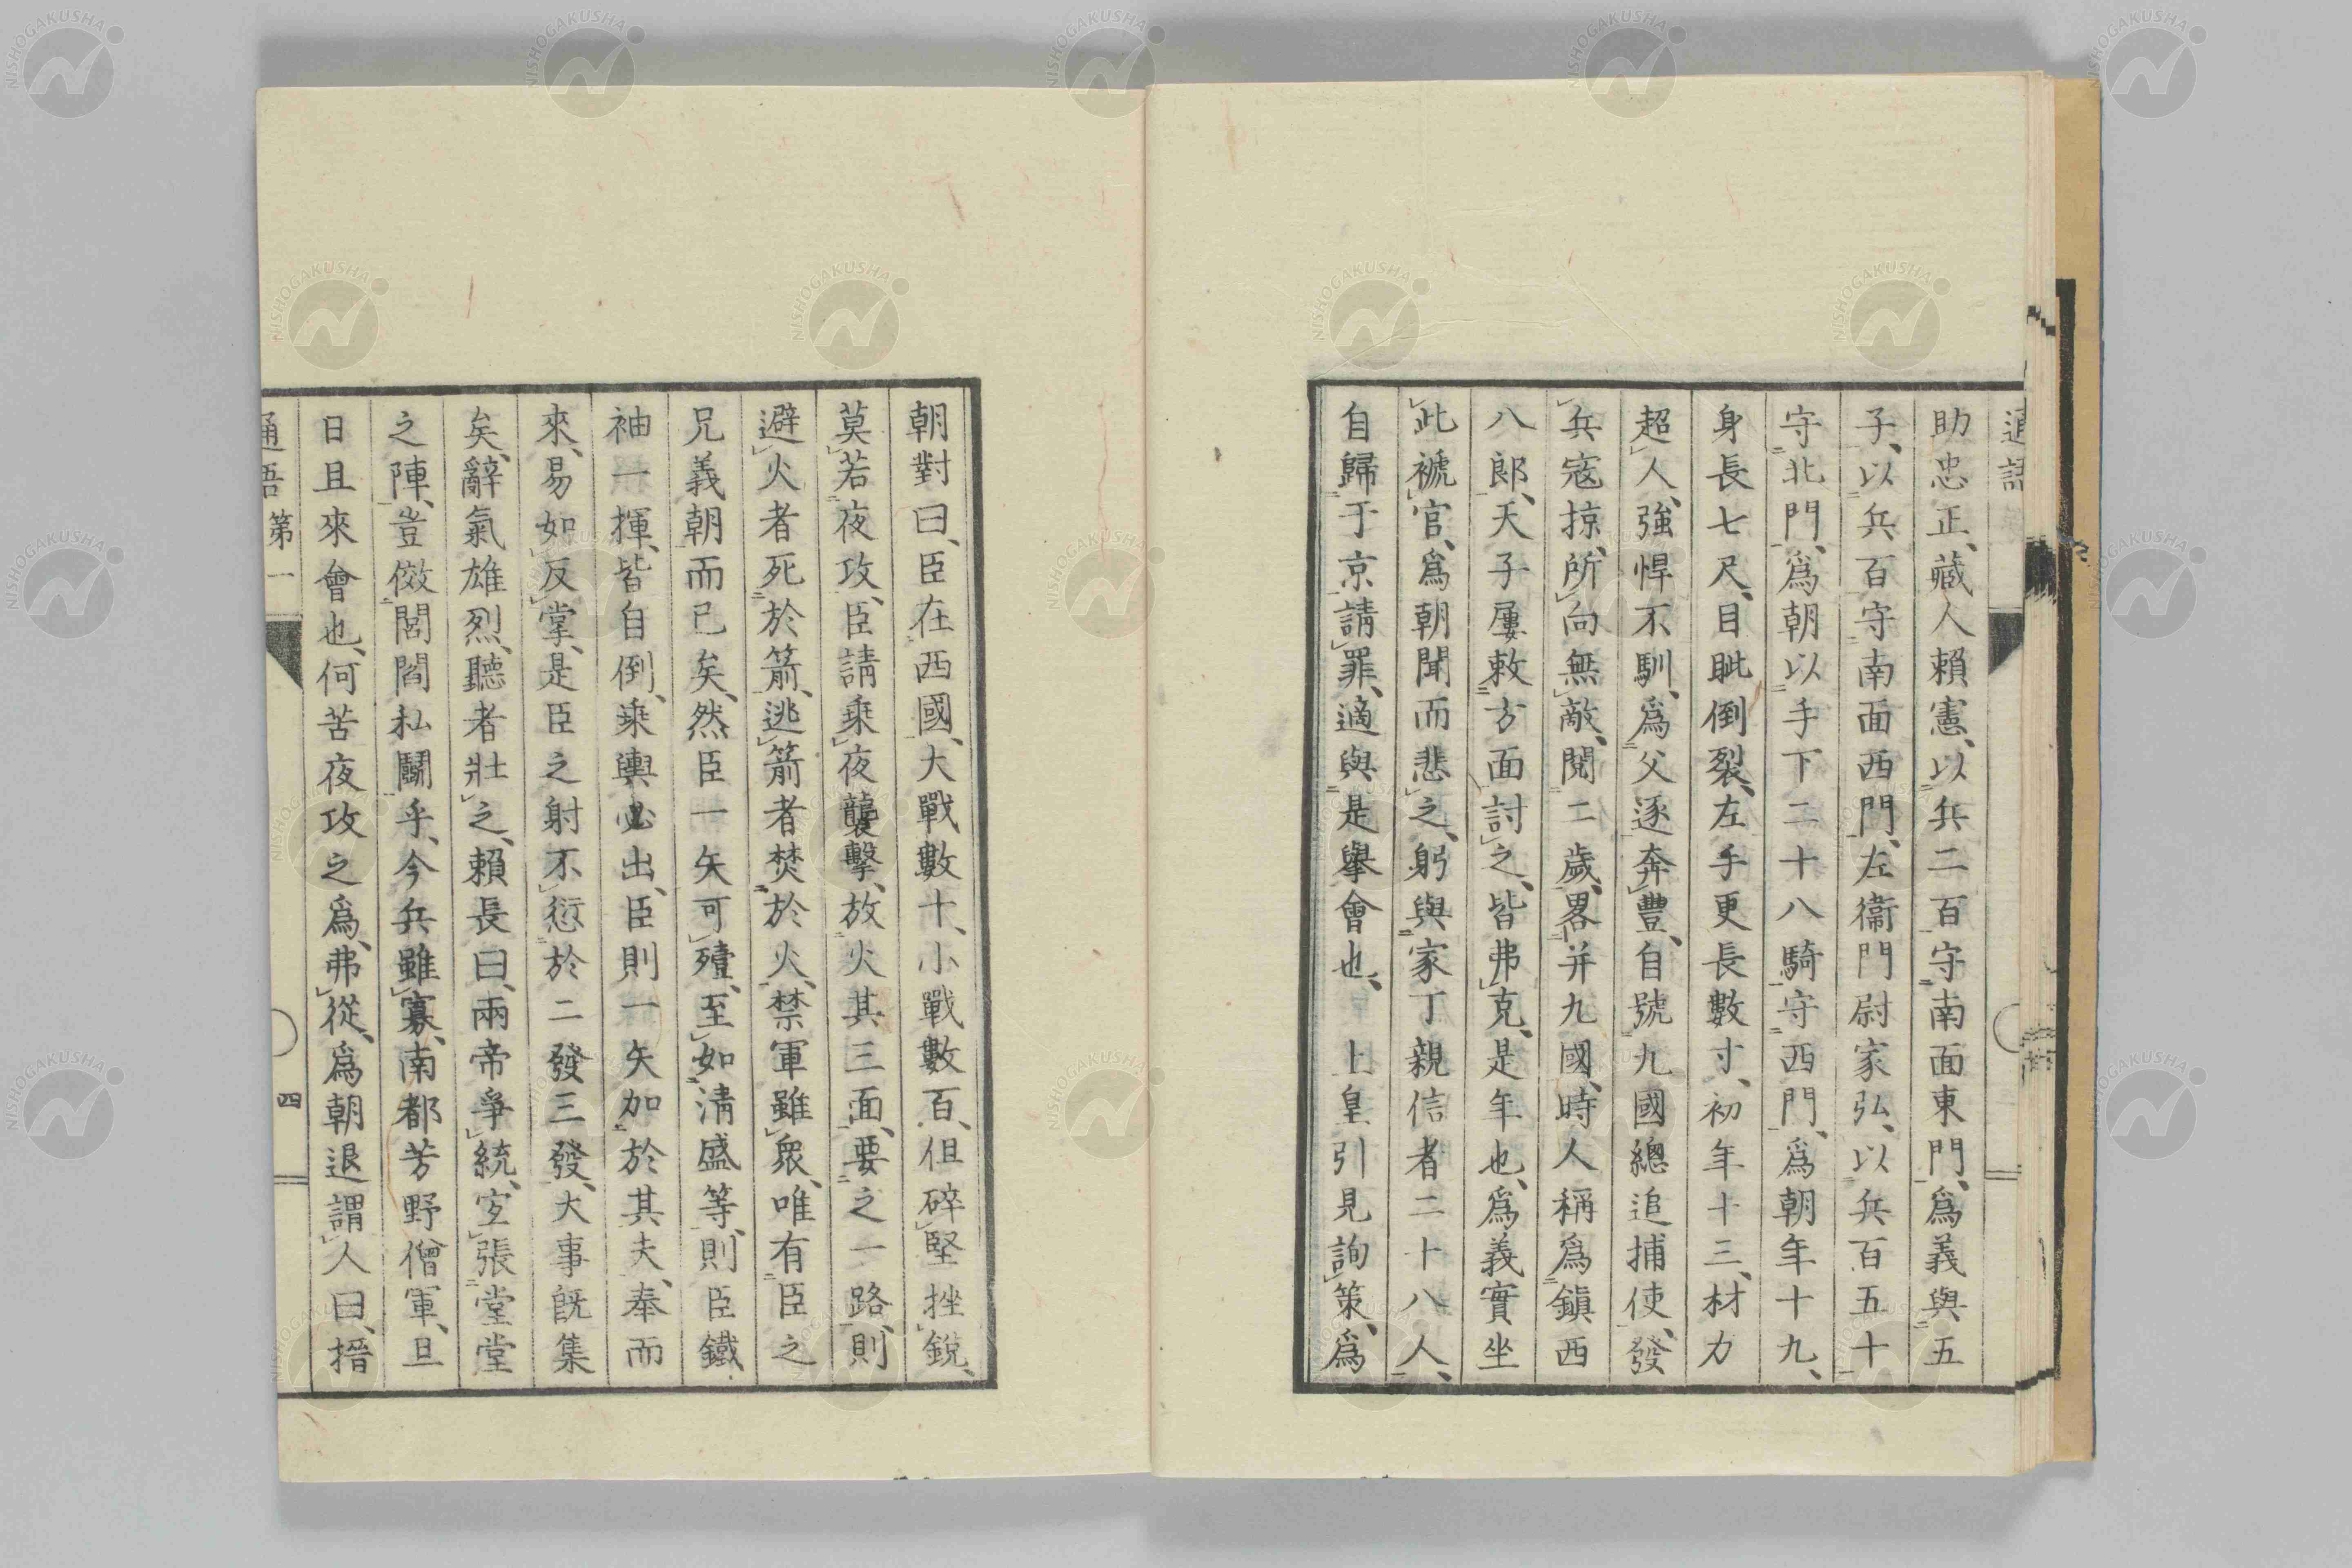 助忠正、藏人賴憲、以兵二百守南面東門、爲義與五
子、以兵百守南面西門、左衞門尉家弘、以兵百五十
守北門、爲朝以手下二十八騎守西門、爲朝年十九、
身長七尺、目眦倒裂、左手更長數寸、初年十三、材力
超人、強悍不馴、爲父逐奔豐、自號九國總追捕使、發
兵寇掠、所向無敵、閱二歲、畧并九國、時人稱爲鎭西
八郎、天子屢敕方面討之、皆弗克、是年也、爲義實坐
此褫官、爲朝聞而悲之、躬與家丁親信者二十八人、
自歸于京請罪、適與是擧會也、上皇引見詢策、爲
朝對曰、臣在西國、大戰數十、小戰數百、但碎堅挫銳、
莫若夜攻、臣請乘夜襲擊、放火其三面、要之一路、則
避火者死於箭、逃箭者焚於火、禁軍雖衆、唯有臣之
兄義朝而已矣、然臣一矢可殪、至如淸盛等、則臣鐵
袖一揮、皆自倒、乘輿必出、臣則一矢加於其夫、奉而
來、易如反掌、是臣之射不愆於二發三發、大事旣集
矣、辭氣雄烈、聽者壯之、賴長曰、兩帝爭統、宜張堂堂
之陣、豈傚閭閻私鬭乎、今兵雖寡、南都芳野僧軍、旦
日且來會也、何苦夜攻之爲、弗從、爲朝退謂人曰、搢
通語第一
四
NISHOGAKUSHA